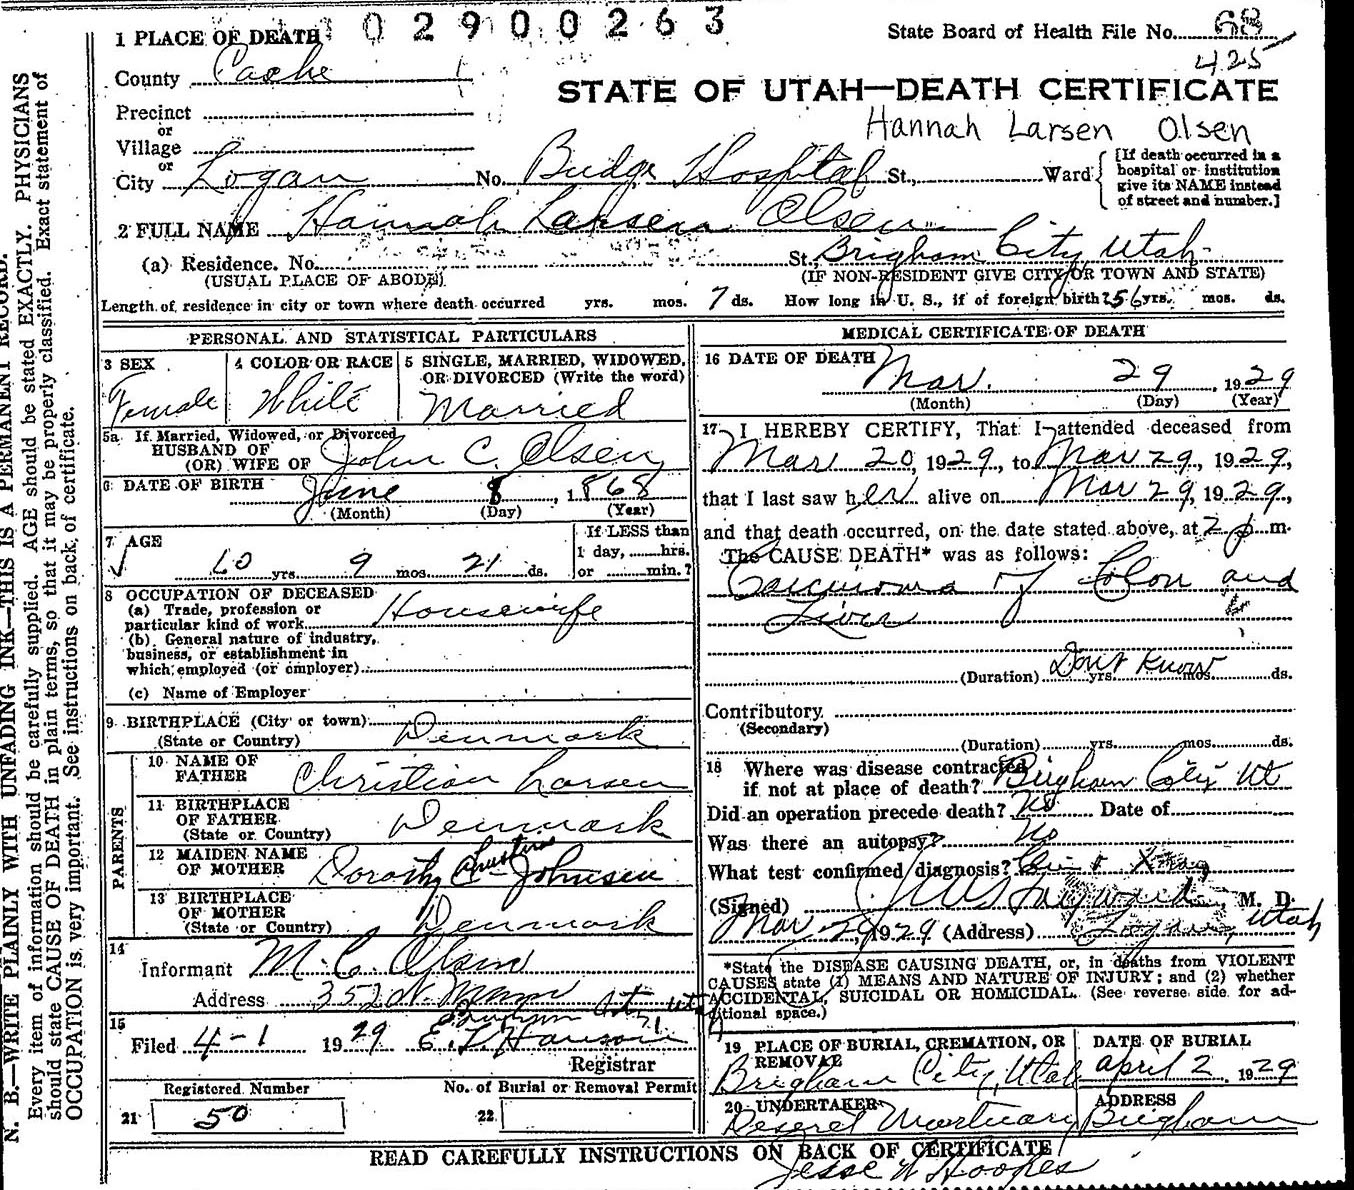 02900263
State Board of Health File No. 68
425
1 PLACE OF DEATH
County Cache
STATE OF UTAH—DEATH CERTIFICATE
Precinct
Hannah Larsen Olsen
or
Village
or
City Logan No. Budge Hospital St., Ward
[If death occurred in a
hospital or institution
give its NAME instead
of street and number.]
2 FULL NAME Hannah Larsen Olsen
(a) Residence. No. St., Brigham City, Utah
(USUAL PLACE OF ABODE) (IF NON-RESIDENT GIVE CITY OR TOWN AND STATE)
Length of residence in city or town where death occurred yrs. mos. 7 ds. How long in U. S., if of foreign birth? 56 yrs. mos. ds.
PERSONAL AND STATISTICAL PARTICULARS
3 SEX
Female
4 COLOR OR RACE
White
5 SINGLE, MARRIED, WIDOWED,
OR DIVORCED (Write the word)
Married
5a If Married, Widowed, or Divorced
HUSBAND OF
(OR) WIFE OF John C. Olsen
6 DATE OF BIRTH June 8, 1868
(Month) (Day) (Year)
7 AGE
60 yrs. 9 mos. 21 ds.
If LESS than
1 day, ......hrs.
or ......min.?
8 OCCUPATION OF DECEASED
(a) Trade, profession or
particular kind of work Housewife
(b) General nature of industry,
business, or establishment in
which employed (or employer)
(c) Name of Employer
9 BIRTHPLACE (City or town)
(State or Country) Denmark
PARENTS
10 NAME OF
FATHER Christian Larsen
11 BIRTHPLACE
OF FATHER
(State or Country) Denmark
12 MAIDEN NAME
OF MOTHER Dorothy C. Christina Johnsen
13 BIRTHPLACE
OF MOTHER
(State or Country) Denmark
14
Informant M. C. Olsen
Address 352 N. Main
Brigham City Ut
15
Filed 4-1 1929 E. L. Hanson
Registrar
Registered Number No. of Burial or Removal Permit
21 50 22
MEDICAL CERTIFICATE OF DEATH
16 DATE OF DEATH Mar. 29, 1929
(Month) (Day) (Year)
17 I HEREBY CERTIFY, That I attended deceased from
Mar 20, 1929, to Mar 29, 1929,
that I last saw her alive on Mar 29, 1929,
and that death occurred, on the date stated above, at 2 p m.
The CAUSE DEATH* was as follows:
Carcinoma of Colon and
Liver
(Duration) Don't Know yrs. mos. ds.
Contributory
(Secondary)
(Duration) yrs. mos. ds.
18 Where was disease contracted
if not at place of death? Brigham City Ut
Did an operation precede death? No Date of
Was there an autopsy? No
What test confirmed diagnosis? X-ray
(Signed) M. D.
Mar 29, 1929 (Address) Logan, Utah
*State the DISEASE CAUSING DEATH, or, in deaths from VIOLENT
CAUSES state (1) MEANS AND NATURE OF INJURY; and (2) whether
ACCIDENTAL, SUICIDAL OR HOMICIDAL. (See reverse side for ad-
ditional space.)
19 PLACE OF BURIAL, CREMATION, OR
REMOVAL
Brigham City, Utah
DATE OF BURIAL
April 2, 1929
20 UNDERTAKER
Deseret Mortuary
ADDRESS
Brigham
READ CAREFULLY INSTRUCTIONS ON BACK OF CERTIFICATE
Jesse W Hoopes
N. B.—WRITE PLAINLY WITH UNFADING INK—THIS IS A PERMANENT RECORD.
Every item of information should be carefully supplied. AGE should be stated EXACTLY. PHYSICIANS
should state CAUSE OF DEATH in plain terms, so that it may be properly classified. Exact statement of
OCCUPATION is very important. See instructions on back of certificate.